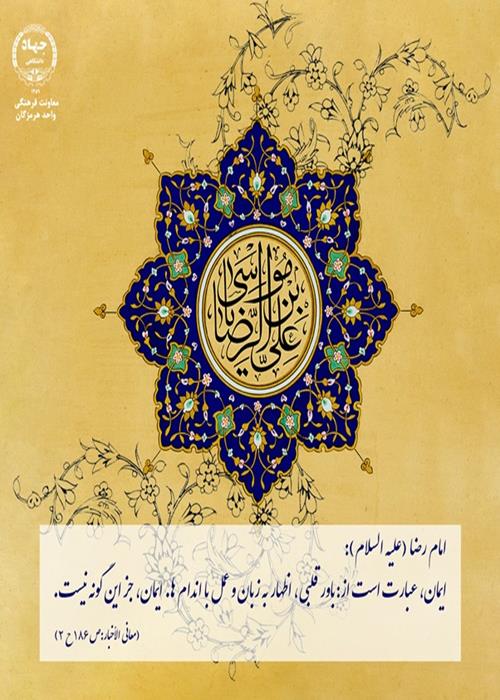 جهاد
دانشگاهی
۱۳۵۹
معاونت فرهنگی
واحد هرمزگان
علی بن موسی الرضا
امام رضا (علیه السلام):
ایمان، عبارت است از: باور قلبی، اظهار به زبان و عمل با اندام ها. ایمان، جز این گونه نیست.
(معانی الأخبار: ص ۱۸۶ ح ۲)